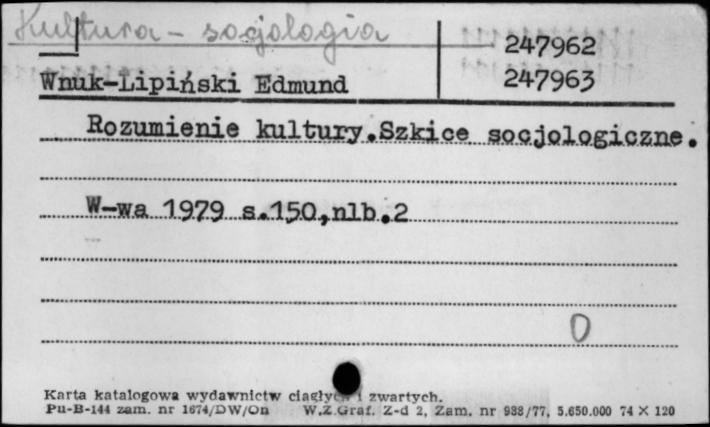 Kultura - socjologia
247962
Wnuk-Lipiński Edmund
247963
Rozumienie kultury.Szkice socjologiczne.
W-wa 1979 s.150,nlb.2
0
Karta katalogowa wydawnictw ciągłych i zwartych.
Pu-B-144 zam. nr 1674/DW/On W.Z.Graf. Z-d 2, Zam. nr 988/77, 5.650.000 74 X 120